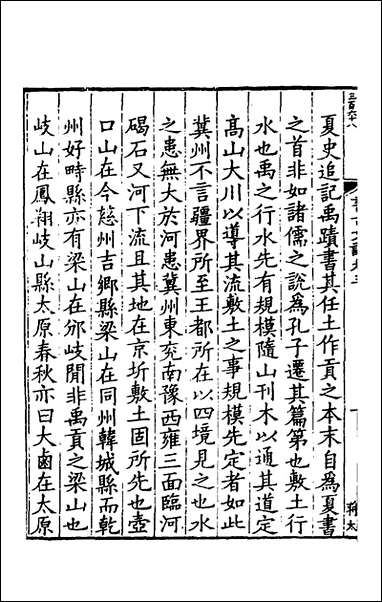 夏史追記禹蹟書其任土作貢之本末自為夏書
之首非如諸儒之說為孔子遷其篇第也敷土行
水也禹之行水先有規模隨山刊木以通其道定
髙山大川以導其流敷土之事規模先定者如此
冀州不言疆界所至王都所在以四境見之也水
之患無大於河患冀州東兖南豫西雍三面臨河
碣石又河下流且其地在京圻敷土固所先也壺
口山在今慈州吉鄉縣梁山在同州韓城縣而乾
州好畤縣亦有梁山在邠岐閒非禹貢之梁山也
岐山在鳳翔岐山縣太原春秋亦曰大鹵在太原